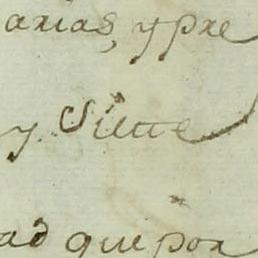 arias, y pre
y. Siette
ad que por